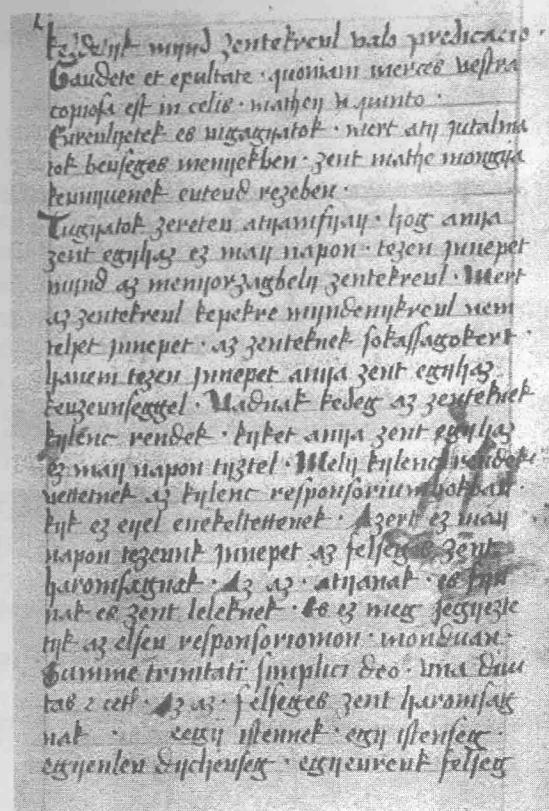 kezdetyk mynd zentekreul valo predicacio ·
Gaudete et exultate · quoniam merces vestra
copiosa est in celis · mathey v quinto ·
Eureulyetek es vigagyatok · mert aty jutalma
tok beuseges menyekben · zent mathe mongya
keunyuenek euteud rezeben ·
Tugyatok zereteu atyamfyay · hog anya
zent egyhaz ez may napon · tezen jnnepet
mynd az menyorzagbely zentekreul · Mert
az zentekreul kepekre myndenykreul nem
tehet jnnepet · az zenteknek sokassagokert ·
hanem tezen jnnepet anya zent egyhaz
keuzeunseggel · Vadnak kedeg az zenteknek
kylenc rendek · kyket anya zent egyhaz
ez may napon tyztel · Mely kylenc rendek
vettetnek az kylenc responsoriumokban ·
kyk ez eyel enekeltettenek · Azert ez may
napon tezeunk jnnepet az felseges zent
haromsagnak · Az az · atyanak · es fyu
nak es zent leleknek · Es ez meg jegyezte
tyk az elseu responsoriomon · monduan ·
Summe trinitati simplici deo · vna diui
tas 2 cetera · Az az · felseges zent haromsag
nak · eegy istennek · egy istenseg ·
egyenleu dycheuseg · egyeureuk felseg